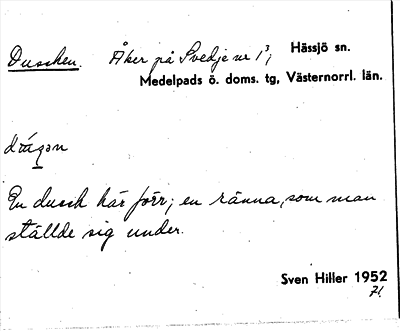 Duschen. Åker på Svedje nr 1³, Hässjö sn.
Medelpads ö. doms. tg, Västernorrl. län.
En dusch här förr; en ränna, som man
ställde sig under.
Sven Hiller 1952